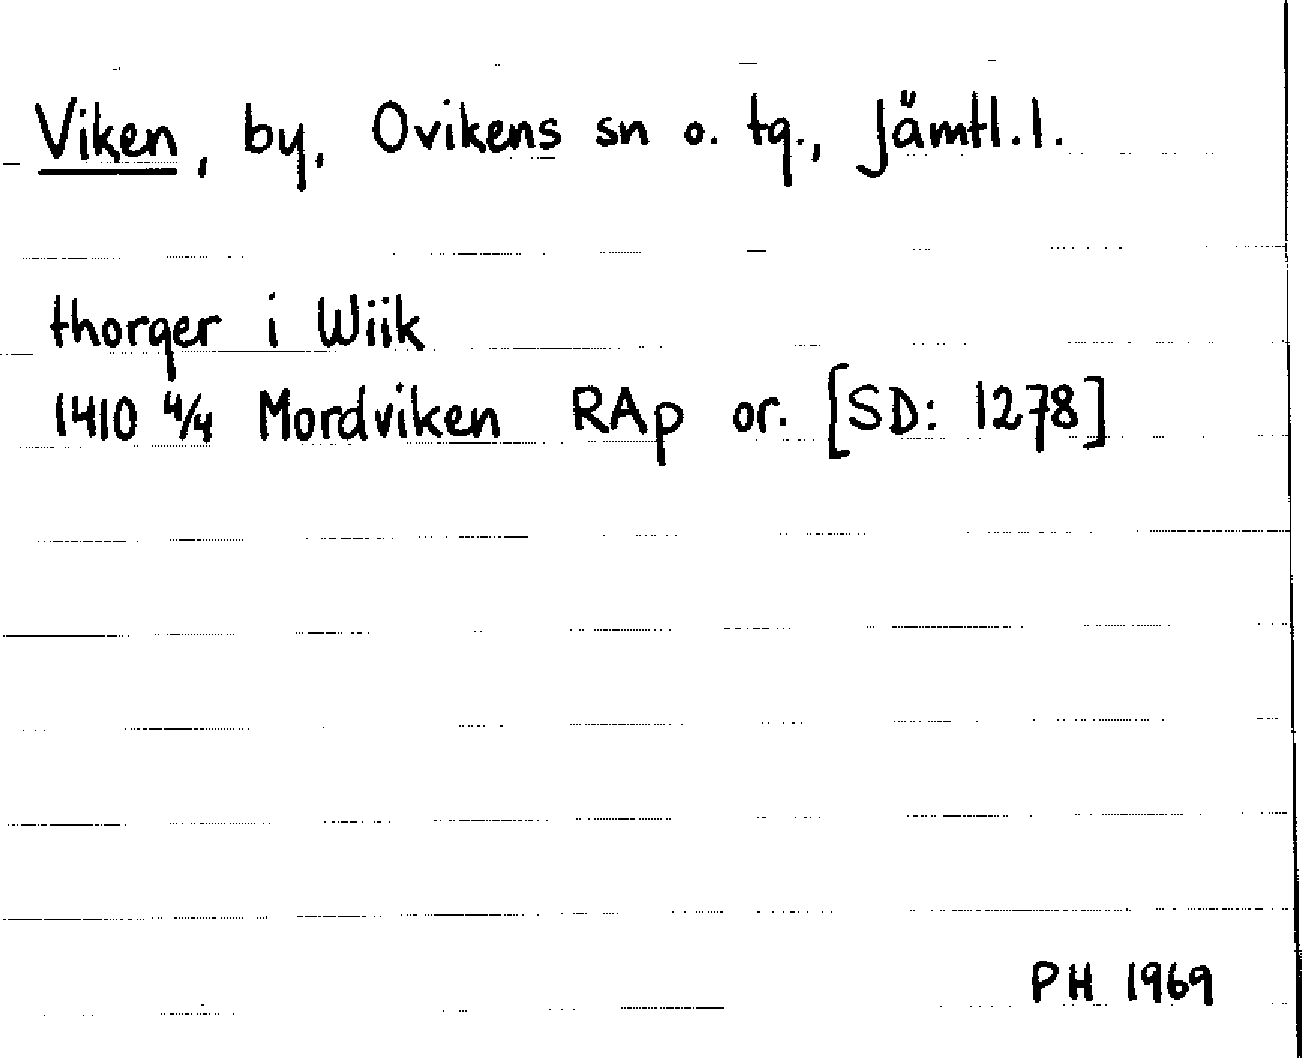 Viken, by, Ovikens sn o. tg., Jämtl.l.
thorger i Wiik
1410 4/4 Mordviken RAp or. [SD: 1278]
PH 1969